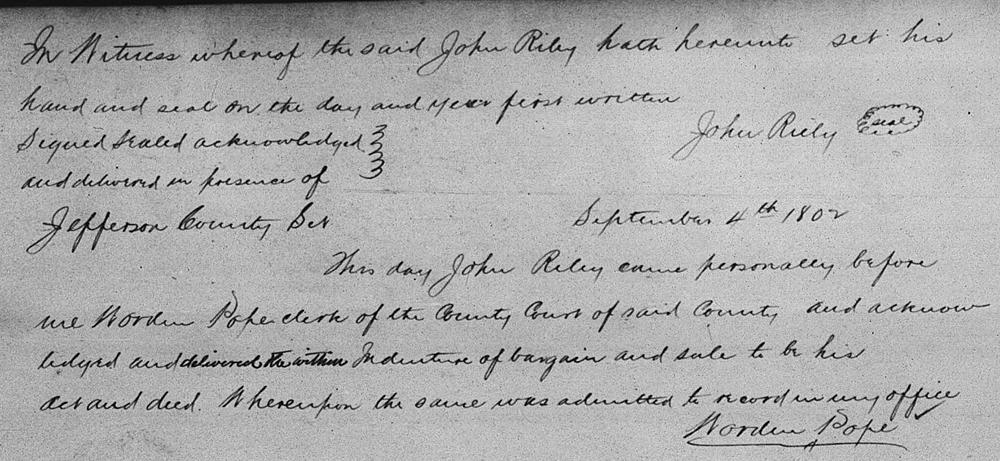 In Witness whereof the said John Riley hath hereunto set his
hand and seal on the day and year first written
John Riely seal
Signed Sealed acknowledged
and delivered in presence of
Jefferson County Sct
September 4th 1802
This day John Riley came personally before
me Worden Pope clerk of the County Court of said County and acknow
ledged and delivered the within Indenture of bargain and sale to be his
act and deed. Whereupon the same was admitted to record in my office
Worden Pope